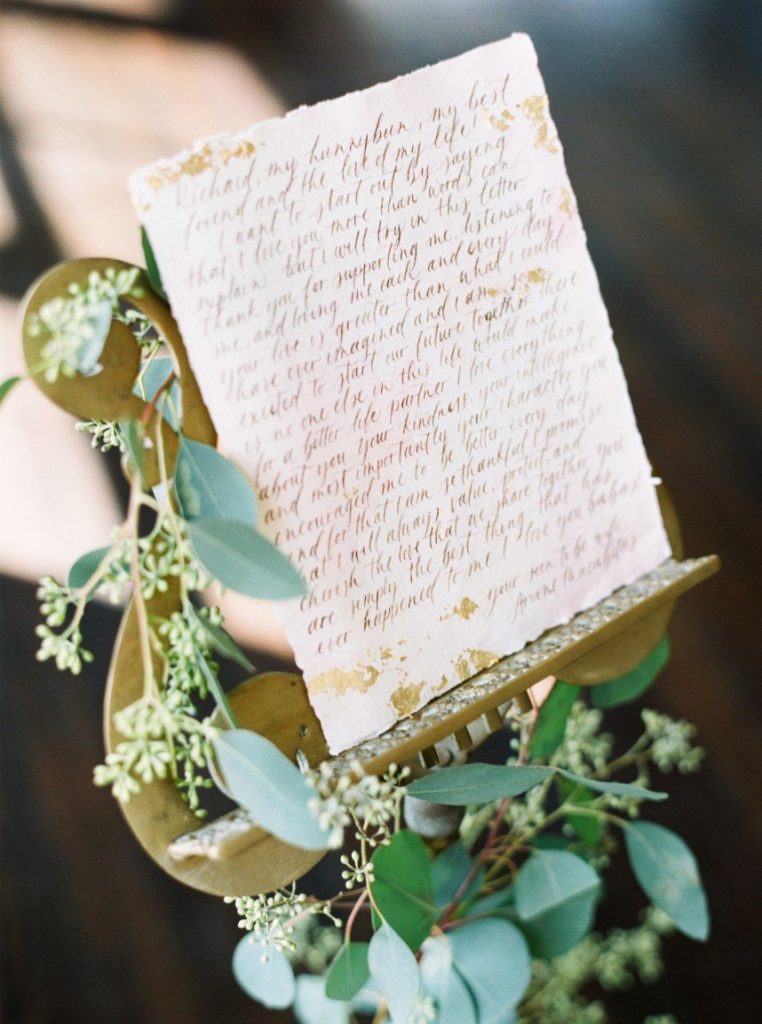 Richard, my hunnybun, my best
friend and the love of my life!
I want to start out by saying
that, I love you more than words can
explain but I will try in this letter.
Thank you for supporting me, listening to
me, and loving me each and every day
your love is greater than what I could
have ever imagined and I am so
excited to start our future together. There
is no one else in this life would make
for a better life partner. I love everything
about you your kindness, your intelligence
and most importantly your character. You
encouraged me to be better every day
and for that I am so thankful. I promise
that I will always value, protect, and
cherish the love that we share together. You
are simply the best thing that has
ever happened to me. I love you babas!
your soon to be wife
Ariane